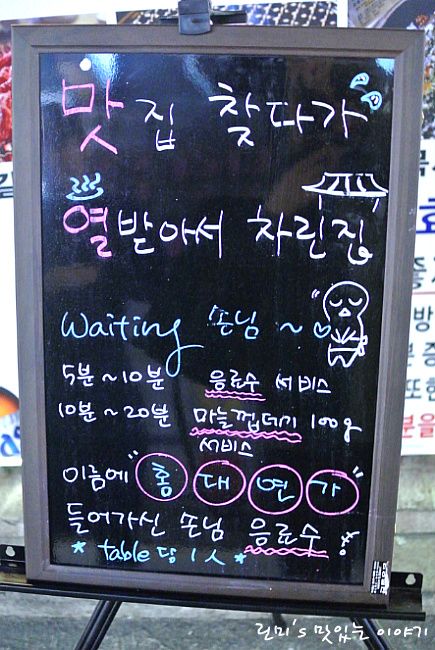 맛집 찾다가
열받아서 차린집
Waiting 손님 ~
5분 ~ 10분 음료수 서비스
10분 ~ 20분 마늘껍데기 100g
서비스
이름에 "홍대연가"
들어가신 손님 음료수!
* table당 1人 *
린미's 맛있는 이야기